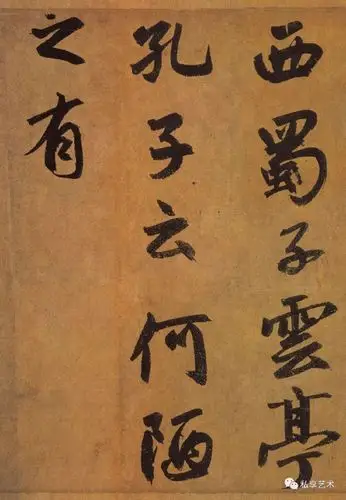 西蜀子雲亭
孔子云何陋
之有
私享艺术